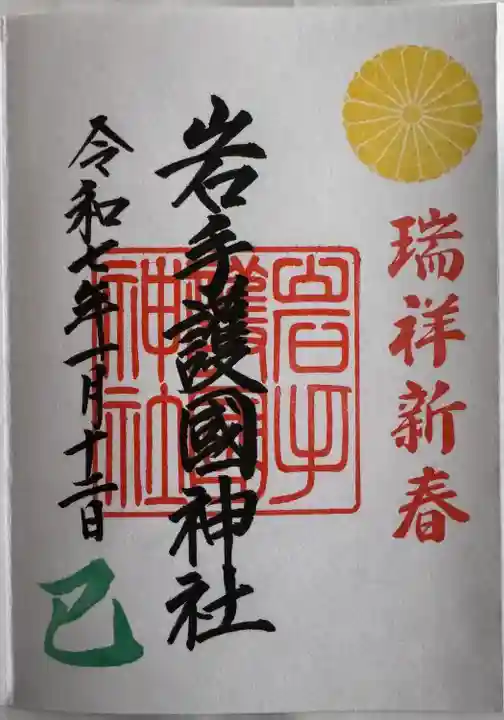 瑞祥新春
岩手護國神社
岩手
護國
神社
令和七年一月十二日
巳